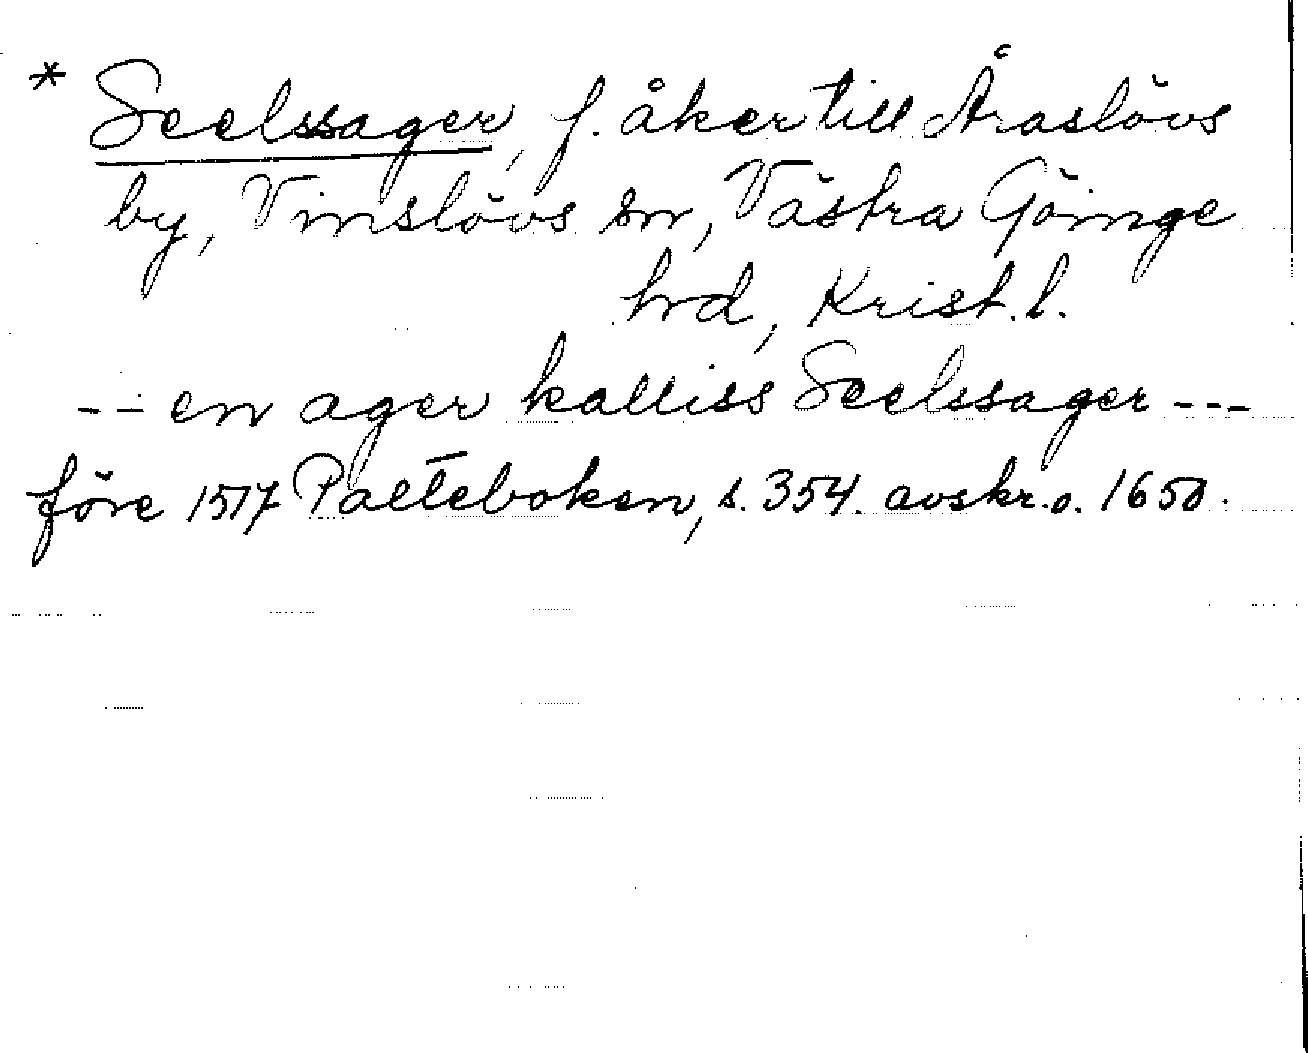 * Seelssager, f. åker till Åraslövs
by, Vinslövs sn, Västra Göinge
hrd, Krist. l.
-- en ager kalliss Seelssager ---
före 1517 Palteboken, s. 354. avskr. o. 1650.